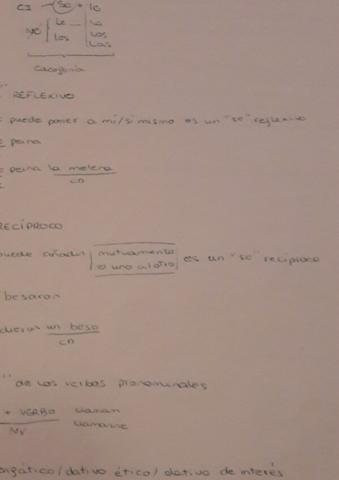 CI → Se + lo
NO Le la
Les los
Las
Cacofonía
" REFLEXIVO
puede poner a mi/si mismo es un "se" reflexivo
peina
peina la melena
CD
RECÍPROCO
puede añadir mutuamente
o uno al otro es un "se" recíproco
besaron
dieron un beso
CD
" de los verbos pronominales
+ VERBO llaman
NV llamarse
/ dativo ético / dativo de interés